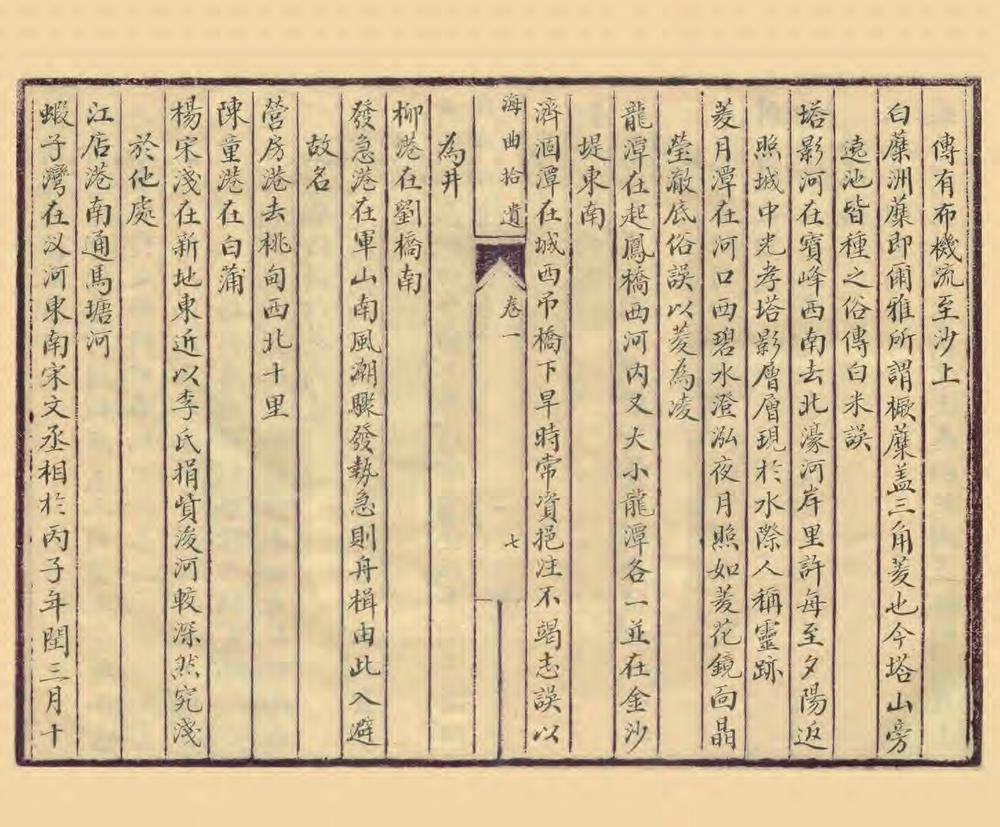 傳有布機流至沙上
白蘪洲蘪即爾雅所謂橛蘪蓋三角菱也今塔山旁
遶池皆種之俗傳白米誤
塔影河在寶峰西南去北濠河岸里許每至夕陽返
照城中光孝塔影層層現於水際人稱靈跡
菱月潭在河口西碧水澄泓夜月照如菱花鏡面晶
瑩澈底俗誤以菱為凌
龍潭在起鳳橋西河內又大小龍潭各一並在金沙
堤東南
濟涸潭在城西吊橋下旱時常資挹注不竭志誤以
海曲拾遺
卷一
七
為井
柳港在劉橋南
發急港在軍山南風潮驟發勢急則舟楫由此入避
故名
營房港去桃甸西北十里
陳童港在白蒲
楊宋淺在新地東近以李氏捐貲浚河較深然究淺
於他處
江店港南通馬塘河
蝦子灣在汊河東南宋文丞相於丙子年閏三月十